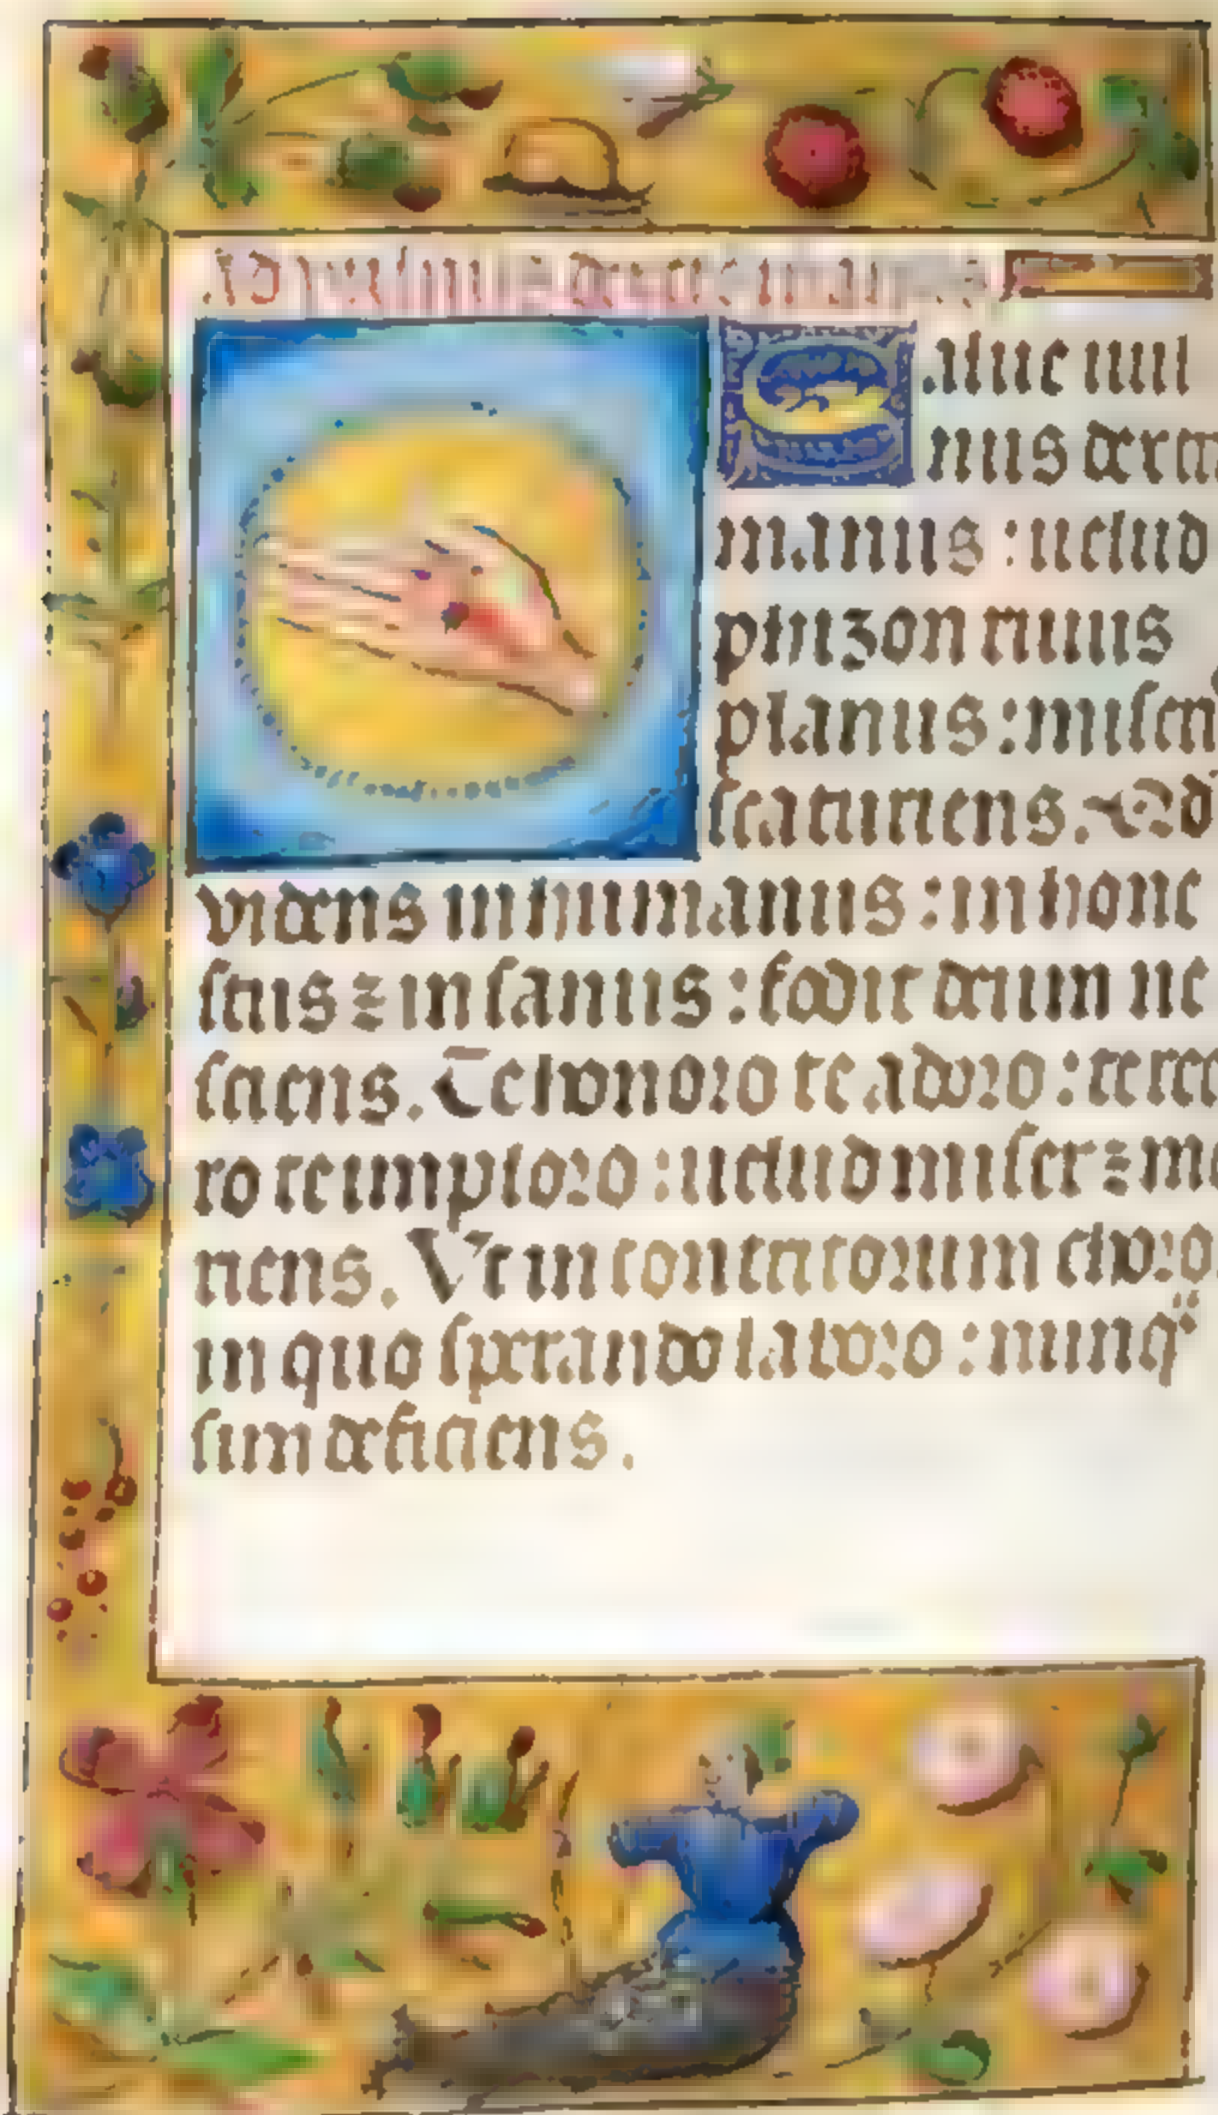 Ad vulnus dextre manus
Salue uul
nus dextre
manus : uelud
phizon riuus
planus : miseri
scaturiens. Quod
videns inhumanus : inhone
stus ⁊ insanus : fodit deum ne
sciens. Te honoro te adoro : te rero
ro te imploro : uelud miser ⁊ me
riens. Vt in contritorum choro
in quo sperando laboro : nunq̄
sim deficiens.